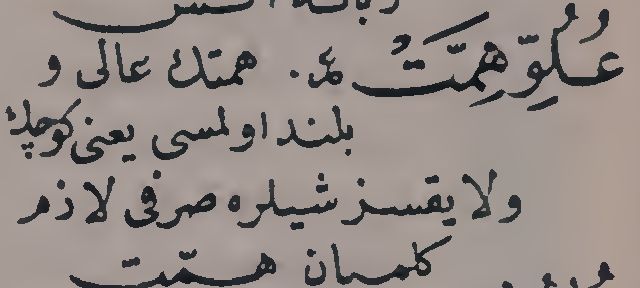 عُلُوِّ هِمَّتْ ع. همتك عالى و
بلند اولمسى يعنى كوچك
ولايقسز شيلره صرفى لازم
كلميان همّت